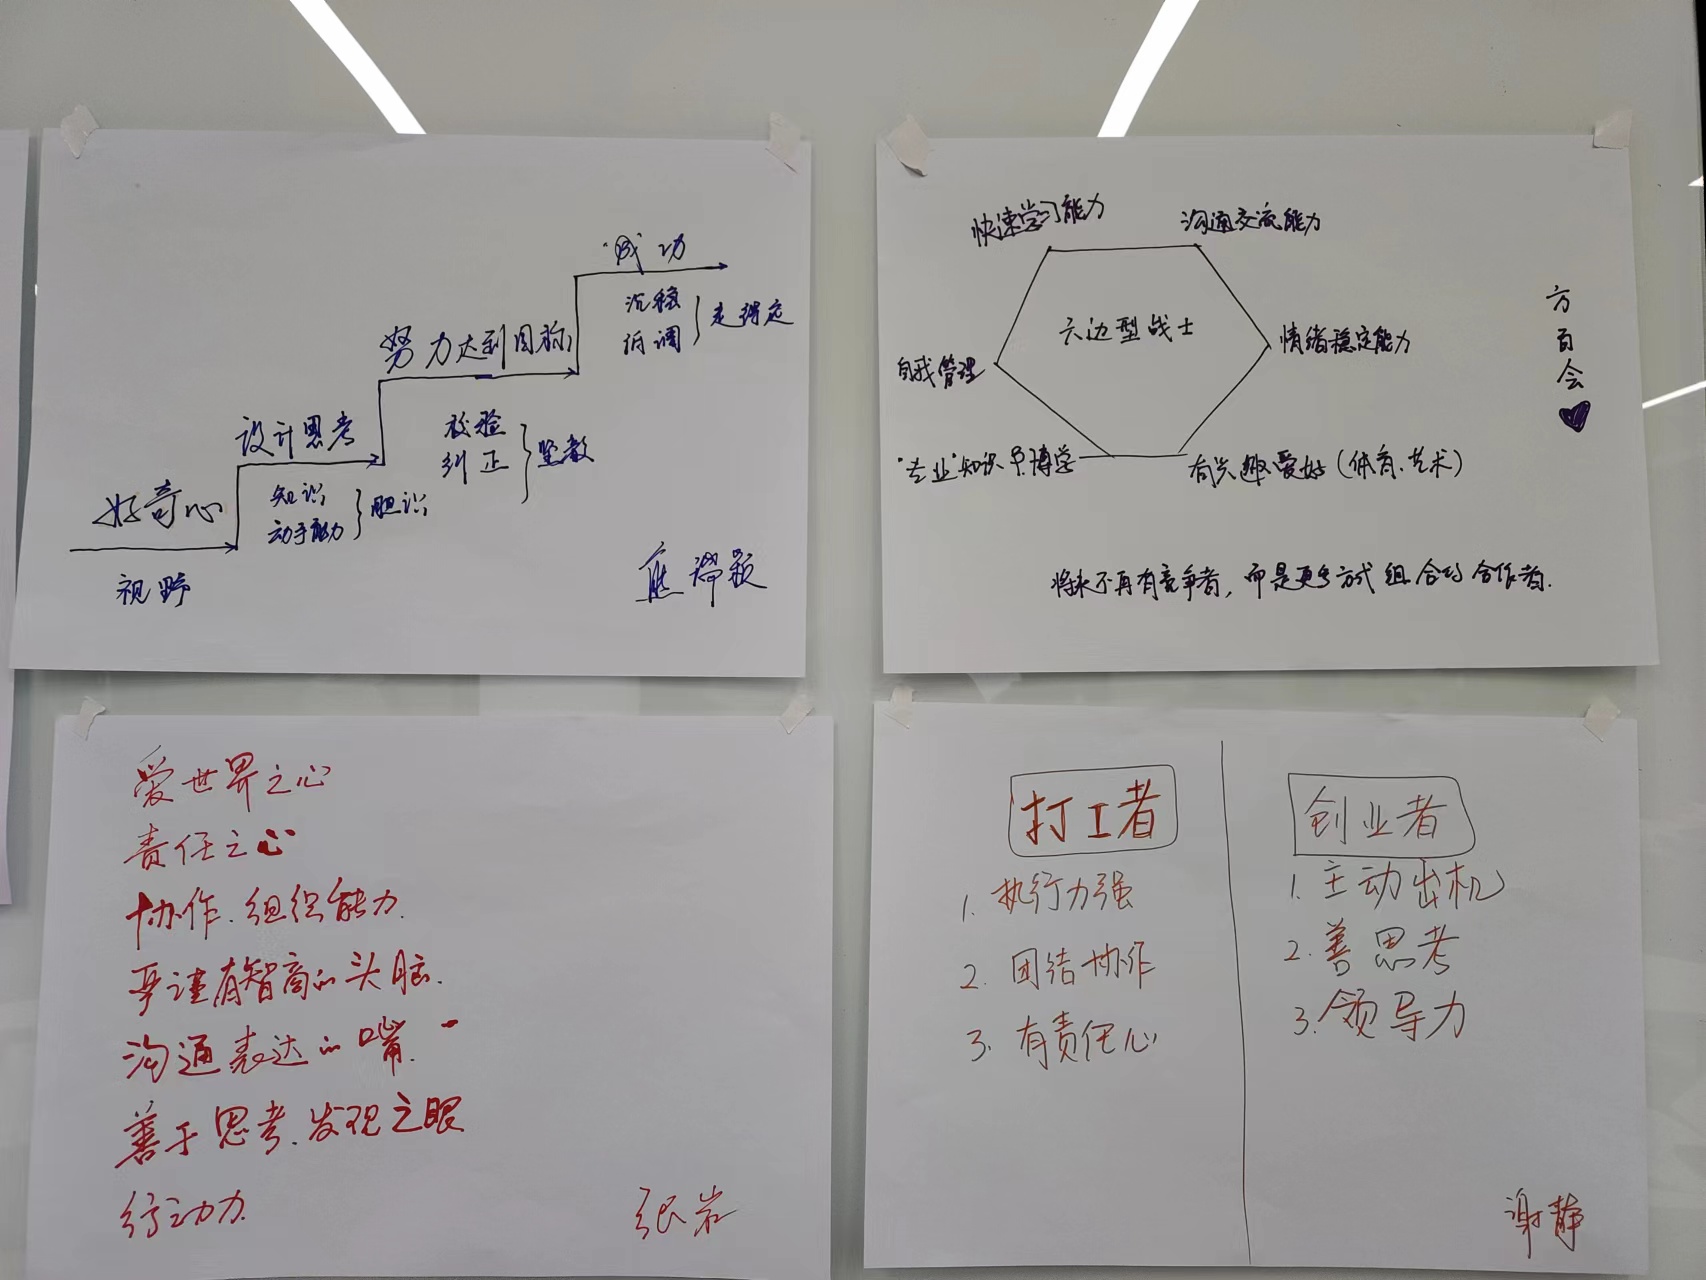 "成"功
沉稳
低调
走得定
努力达到目标
校验
纠正
坚毅
设计思考
知识
动手能力
胆识
好奇心
视野
快速学习能力
沟通交流能力
六边型战士
自我管理
情绪稳定能力
"专业"知识
博学
有兴趣爱好（体育、艺术）
方百会
将来不再有竞争者，而是更多方式组合的合作者.
爱世界之心
责任之心
协作.组织能力.
严谨有智商的头脑.
沟通表达的嘴.
善于思考.发现之眼
行动力
张岩
打工者
1. 执行力强
2. 团结协作
3. 有责任心
创业者
1. 主动出机
2. 善思考
3. 领导力
谢静